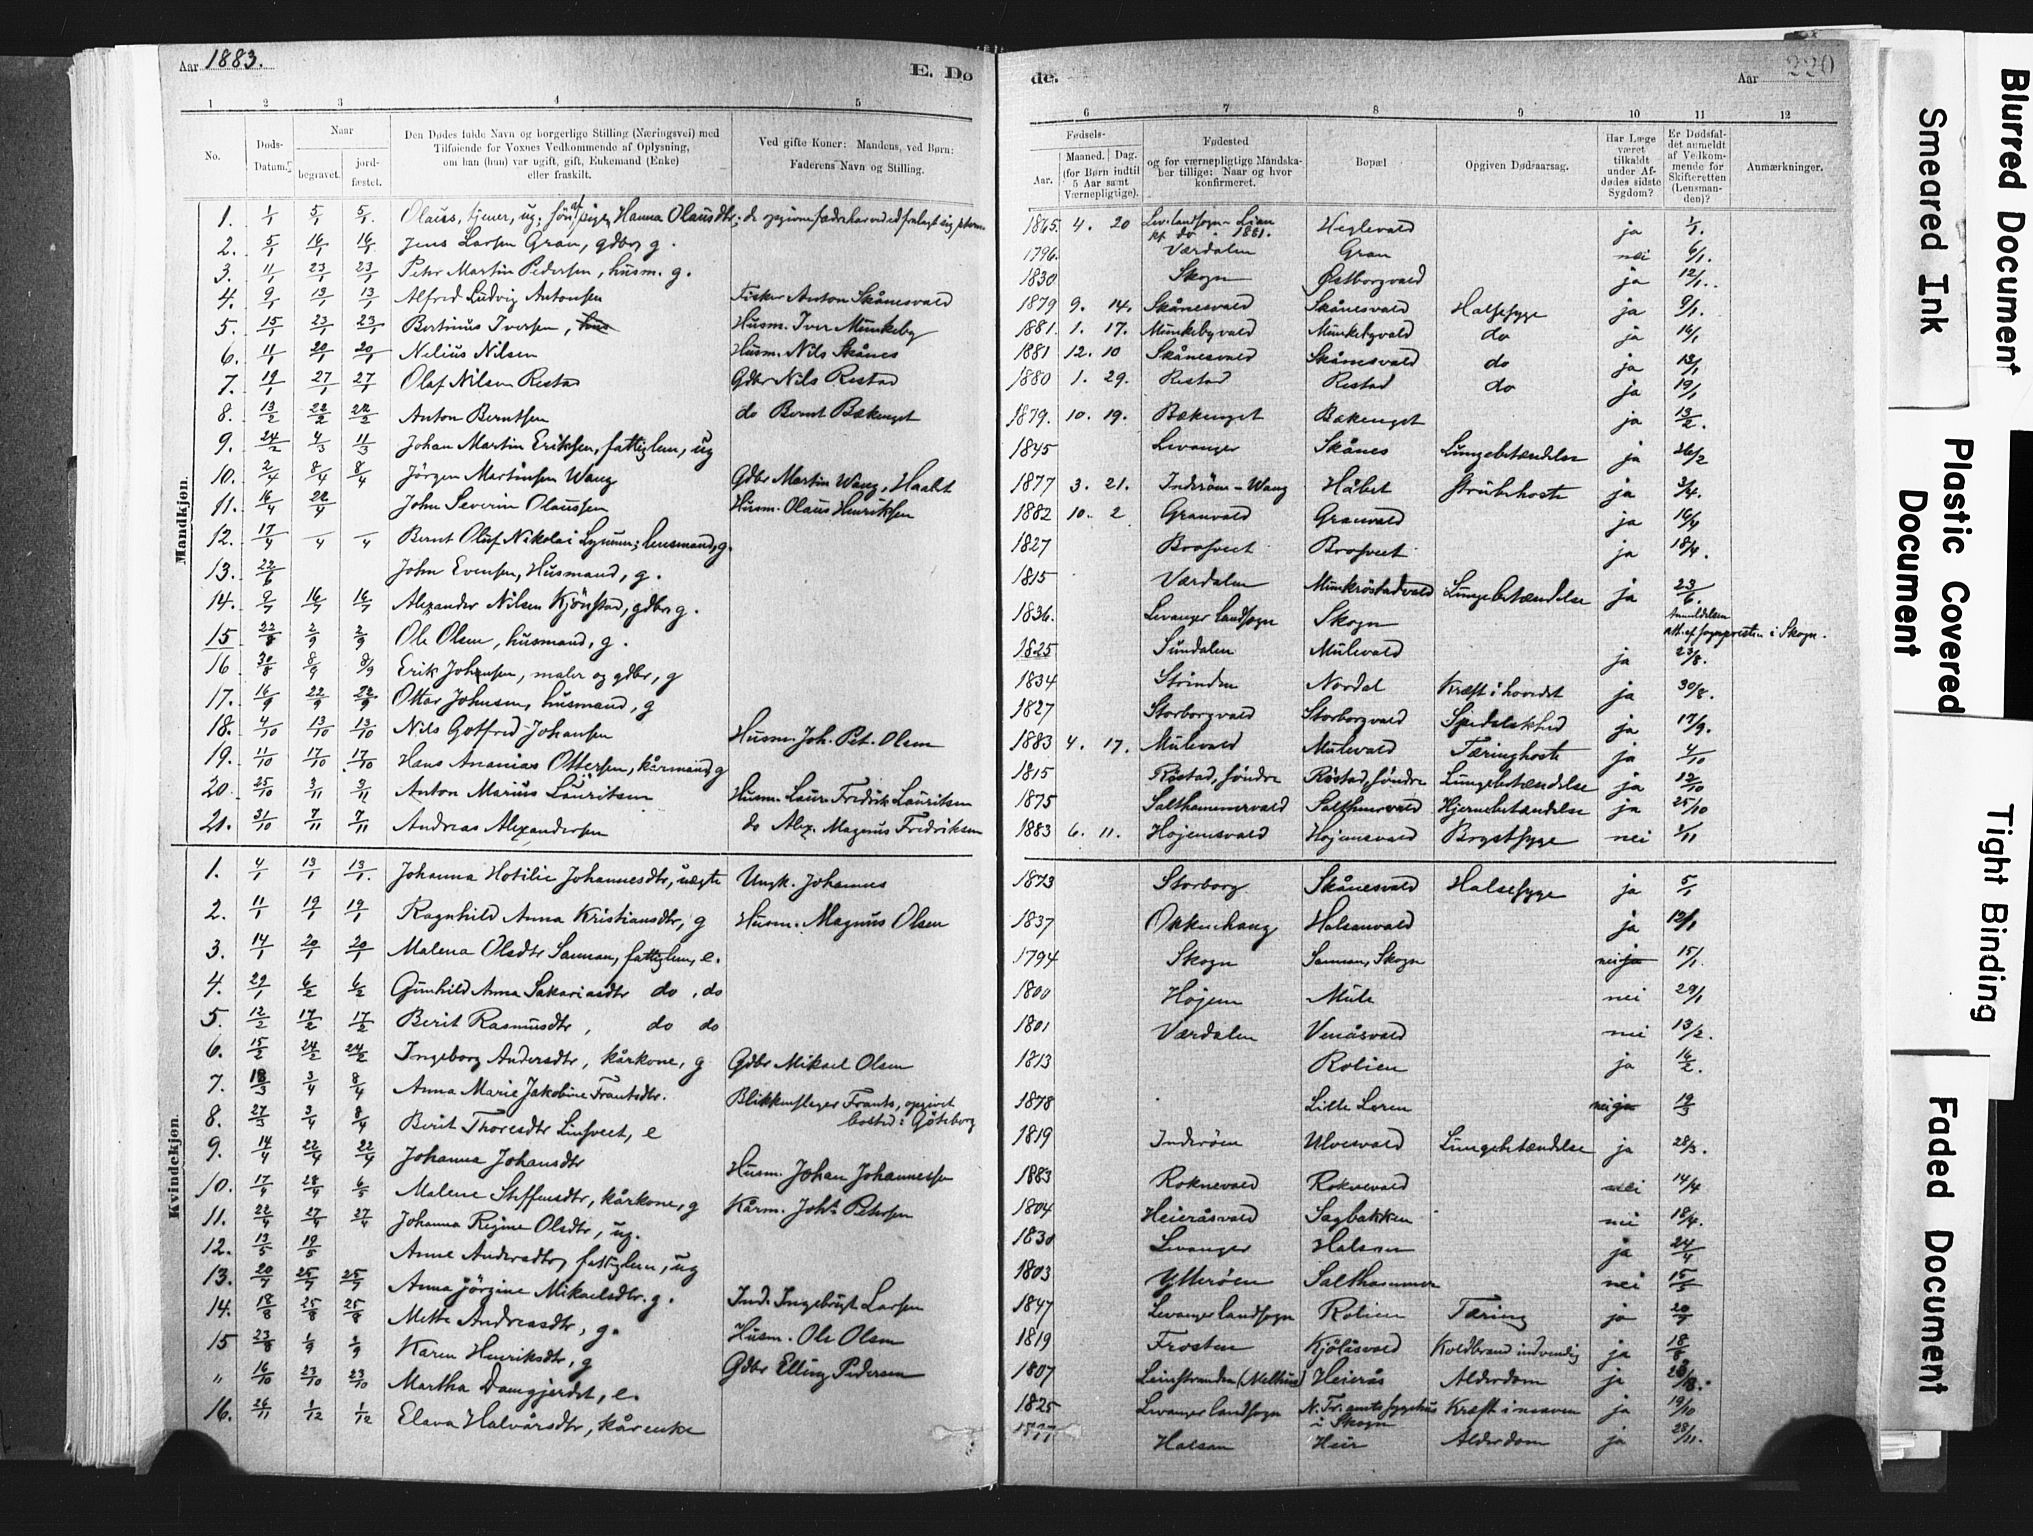 Aar 1883.
E. Dø
de.
Aar 220
1 2 3 4 5
6 7 8 9 10 11 12
No.
Døds-Datum.
Naar
begravet.
jord-fæstet.
Den Dødes fulde Navn og borgerlige Stilling (Næringsvei) med
Tilføiende for Voxnes Vedkommende af Oplysning,
om han (hun) var ugift, gift, Enkemand (Enke)
eller fraskilt.
Ved gifte Koner: Mandens, ved Børn:
Faderens Navn og Stilling.
Fødsels-
Aar.
Maaned. Dag.
(for Børn indtil
5 Aar samt
Værnepligtige).
Fødested
og for værnepligtige Mandska-
ber tillige: Naar og hvor
konfirmeret.
Bopæl
Opgiven Dødsaarsag.
Har Læge
været
tilkaldt
under Af-
dødes sidste
Sygdom?
Er Dødsfal-
det anmeldt
af Vedkom-
mende for
Skifteretten
(Lensman-
den)?
Anmærkninger.
Mandkjøn.
1. 1/1 5/1 5/1. Olaus, tjener, ug; Hanna Olausdtr; 1865. 4. 20 Lev. landsogn 1881. Heglevald ja 1/1.
2. 5/1 16/1 16/1 Jens Larsen Gran, gdbr, g. 1796. Værdalen Gran nei 6/1.
3. 11/1 23/1 23/1 Peter Martin Pedersen, husm. g. 1830 Skogn Østborgvald ja 12/1.
4. 9/1 13/1 13/1 Alfred Ludvig Antonsen Fisker Anton Skånesvald 1879 9. 14. Skånesvald Skånesvald Halssyge ja 9/1.
5. 15/1 23/1 23/1 Bertinus Iversen, Husm. Iver Munkeby 1881. 1. 17. Munkebyvald Munkebyvald do ja 16/1
6. 11/1 20/1 20/1 Nelius Nilsen Husm. Nils Skånes 1881 12. 10 Skånesvald Skånesvald do ja 13/1
7. 19/1 27/1 27/1 Olaf Nilsen Restad Gdbr Nils Restad 1880 1. 29. Restad Restad do ja 19/1
8. 13/2 22/2 22/2 Anton Berntsen do Bernt Bækenget 1879. 10. 19. Bækenget Bækenget ja 13/2.
9. 24/2 4/3 11/3 Johan Martin Eriksen, fattiglem, ug 1845 Levanger Skånes Lungebetændelse ja 26/2
10. 2/4 8/4 8/4 Jörgen Martinsen Wang Gdbr Martin Wang, Haabt 1877 3. 21. Inderöen - Wang Håbet Strubehoste ja 3/4.
11. 16/4 22/4 John Severin Olaussen Husm. Olaus Henriksen 1882 10. 2 Granvald Granvald ja 16/4
12. 17/4 " " Bernt Oluf Nikolai Lynum; lensmand, g. 1827 Brosveet Brosveet ja 18/4.
13. 22/6 John Evensen, Husmand, g. 1815 Værdalen Munkröstadvald Lungebetændelse ja 23/6.
14. 9/7 16/7 16/7 Alexander Nilsen Kjönstad, gdbr, g. 1836. Levanger landsogn Skogn Anmeldelsen att. af sognepresten i Skogn.
15 22/8 2/9 2/9 Ole Olsen, husmand, g. 1825 Sundalen Mulevald ja 23/8.
16 30/8 8/9 8/9 Erik Johansen, maler og gdbr, g 1834 Strinden Nordal Kræft i hovedet ja 30/8.
17. 16/9 22/9 22/9 Ottar Johnsen, husmand, g 1827 Storborgvald Storborgvald Spedalskhed ja 17/9.
18. 4/10 13/10 13/10 Nils Gotfred Johansen Husm. Joh. Pet. Olsen 1883 4. 17. Mulevald Mulevald Tæringhoste ja 4/10
19. 11/10 17/10 17/10 Hans Ananias Ottersen, kårmand, g 1815 Röstad, söndre Röstad, söndre Lungebetændelse ja 12/10
20. 25/10 3/11 3/11 Anton Marius Lauritsen Husm. Laur. Fredrik Lauritsen 1875 Salthammervald Salthmrvald Hjernebetændelse ja 25/10
21. 31/10 7/11 7/11 Andreas Alexandersen do Alex. Magnus Fredriksen 1883 6. 11. Hojemsvald Hojemsvald Brystsyge nei 1/11
Kvindekjøn.
1. 4/1 13/1 13/1. Johanna Hotilie Johannesdtr, uægte Ungk. Johannes 1873 Storborg Skånesvald Halssyge ja 5/1
2. 11/1 19/1 19/1 Ragnhild Anna Kristiansdtr, g Husm. Magnus Olsen 1837 Okkenhaug Halsanvald ja 12/1
3. 14/1 20/1 20/1 Malena Olsdtr Sannan, fattiglem, e. 1794 Skogn Sannan, Skogn nei ja 15/1.
4. 29/1 6/2 6/2 Gunhild Anna Sakariasdtr do, do 1800 Hojem Mule nei 29/1
5. 12/2 17/2 17/2 Berit Rasmusdtr, do do 1801 Værdalen Venåsvald nei 13/2.
6. 15/2 24/2 24/2 Ingeborg Andersdtr, kårkone, g Gdbr Mikael Olsen 1813 Rolien ja 16/2.
7. 18/3 3/4 8/4 Anna Marie Jakobine Frantsdtr. Blikkenslager Frants, opgivet bosted: Göteborg 1878 Lille Leren nei ja 19/3
8. 27/3 3/4 8/4 Berit Thoresdtr Linsveet, e 1819 Inderöen Ulvesvald Lungebetændelse ja 28/3.
9. 14/4 22/4 22/4 Johanna Johansdtr Husm. Johan Johannessen 1883 Roknevald Roknevald nei 14/4
10. 17/4 28/4 6/5 Malene Steffensdtr, kårkone, g Kårm. Johs Petersen 1804 Heieråsvald Sagbakken nei 18/4.
11. 22/4 27/4 27/4 Johanna Regine Olsdtr, ug. 1830 Levanger Halsan ja 24/4
12. 13/5 19/5 Anne Andersdtr, fattiglem, ug 1803 Ytterøen Salthammer nei 15/5
13. 20/7 25/7 25/7 Anna Jörgine Mikaelsdtr. g. Ind. Ingebrigt Larsen 1847 Levanger landsogn Rolien Tæring ja 20/7
14. 18/8 25/8 25/8 Mette Andreasdtr, g. Husm. Ole Olsen 1819 Frosten Kjölåsvald Koldbrand indvendig ja 18/8
15 23/8 1/9 1/9 Karen Henriksdtr, g Gdbr Elling Pedersen 1807 Leinstranden (Melhus) Heierås Alderdom ja 23/8.
" 16/10 23/10 23/10 Martha Damgjerdet, e. 1825 Levanger landsogn N. Tr. amts sygehus i Skogn Kræft i maven ja 19/10
16. 26/11 1/12 1/12 Elava Halvårsdtr, kårenke Halsan Heir Alderdom ja 28/11.
Blurred Document
Smeared Ink
Plastic Covered
Document
Tight Binding
Faded Document